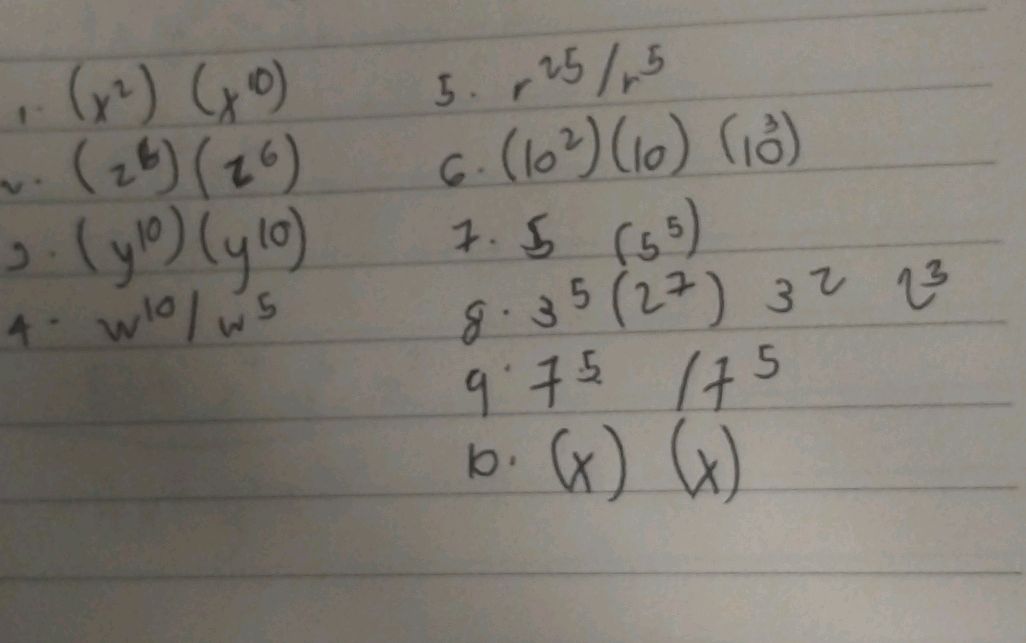 1. (x²) (x¹⁰)
2. (z⁶)(z⁶)
3. (y¹⁰)(y¹⁰)
4. w¹⁰/w⁵
5. r²⁵/r⁵
6. (10²)(10) (10³)
7. 5 (5⁵)
8. 3⁵(2⁷) 3² 2³
9. 7⁵ /7⁵
10. (x) (x)